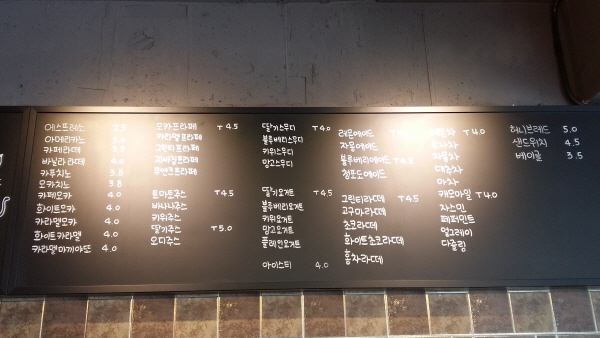 에스프레소
아메리카노
카페라떼
바닐라라떼 4.0
카푸치노 3.8
모카치노 3.8
카페모카 4.0
화이트모카 4.0
카라멜모카 4.0
화이트카라멜 4.0
카라멜마끼아또 4.0
모카프라페 ┬ 4.5
카라멜프라페
그린티프라페
토마토주스 ┬ 4.5
바나나주스
키위주스
딸기주스 ┬ 5.0
오디주스
딸기스무디 ┬ 4.0
블루베리스무디
키위스무디
망고스무디
딸기요거트 ┬ 4.5
블루베리요거트
키위요거트
망고요거트
플레인요거트
아이스티 4.0
레몬에이드
자몽에이드
블루베리에이드
청포도에이드
그린티라떼 ┬ 4.5
고구마라떼
초코라떼
화이트초코라떼
홍차라떼
┬ 4.0
대추차
캐모마일 ┬ 4.0
자스민
페퍼민트
얼그레이
다즐링
허니브레드 5.0
샌드위치 4.5
베이글 3.5